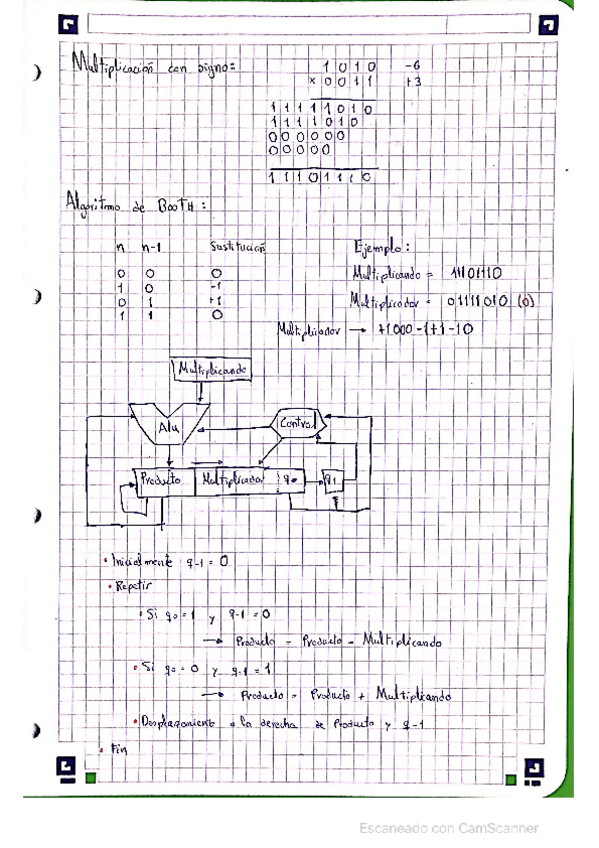 Multiplicación con signo:
1 0 1 0 -6
x 0 0 1 1 +3
1 1 1 1 1 0 1 0
1 1 1 1 0 1 0
0 0 0 0 0 0
0 0 0 0 0
1 1 1 0 1 1 1 0
Algoritmo de BOOTH:
n n-1 Sustitución
0 0 0
1 0 -1
0 1 +1
1 1 0
Ejemplo:
Multiplicando = 11101110
Multiplicador = 01111010 (0)
Multiplicador → +1000-1+1-10
Multiplicando
Alu
Control
Producto Multiplicador q0
q-1
• Inicialmente q-1 = 0
• Repetir
• Si q0 = 1 y q-1 = 0
→ Producto = Producto - Multiplicando
• Si q0 = 0 y q-1 = 1
→ Producto = Producto + Multiplicando
• Desplazamiento a la derecha de Producto y q-1
• Fin
Escaneado con CamScanner